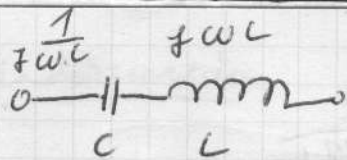 1
jωC
jωL
C
L